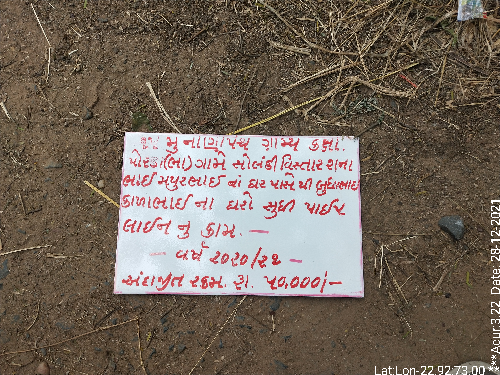 મુ નાણાપંચ ગ્રામ્ય કક્ષા.
પોરડા(ભા) ગામે સોલંકી વિસ્તાર
ભાઈ મથુરભાઈ નાં ઘર પાસે થી બુધાભાઈ
કાળાભાઈ ના ઘરો સુધી પાઈપ
લાઈન નુ કામ. —
— વર્ષ ૨૦૨૦/૨૧ —
અંદાજીત રકમ. રૂા. ૫૦,૦૦૦/-
Lat:Lon-22.92:73.00
***Acur:3.22 Date: 28-12-2021